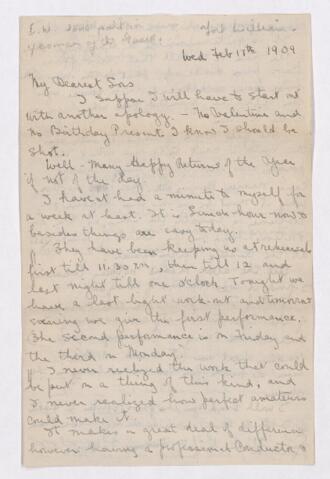 E.W.
Yeoman of the Guard.
Fort William.
Wed Feb 17th 1909
My Dearest Sis
I suppose I will have to start out
with another apology. – No Valentine and
no Birthday Present I know I should be
shot.
Well – Many Happy Returns of the Year
if not of the day
I haven't had a minute to myself for
a week at least. It is Lunch-hour now &
besides things are easy today.
They have been keeping us at rehearsals
first till 11.30 PM, then till 12 and
last night till one o'clock. Tonight we
have a last light work-out and tomorrow
evening we give the first performance.
The second performance is on Friday and
the third on Monday.
I never realized the work that could
be put on a thing of this kind, and
I never realized how perfect amateurs
could make it.
It makes a great deal of difference
however having a professional Conductor, &